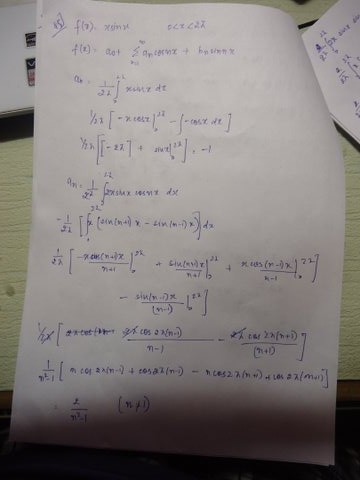 f(x) = x sinx 0 < x < 2λ
f(x) = a0 + ∞ Σ n=1 an cosnx + bn sin nx
a0 = 1/2λ ∫ 0 2λ x sinx dx
1/2λ [ -x cosx | 0 2λ - ∫ -cosx dx ]
1/2λ [ [-2λ] + sinx | 0 2λ ] = -1
an = 1/2λ ∫ 0 2λ 2x sinx cosnx dx
1/2λ [ ∫ 0 2λ x ( sin(n+1)x - sin(n-1)x ) ] dx
1/2λ [ -x cos(n+1)x / n+1 | 0 2λ + sin(n+1)x / n+1 | 0 2λ + x cos(n-1)x / n-1 | 0 2λ
- sin(n-1)x / (n-1) | 0 2λ ]
1/2λ [ 2λ cos 2λ(n-1) / n-1 - 2λ cos 2λ(n+1) / (n+1) ]
1 / n²-1 [ n cos 2λ(n-1) + cos 2λ(n-1) - n cos 2λ(n+1) + cos 2λ(n+1) ]
= 2 / n²-1 (n ≠ 1)